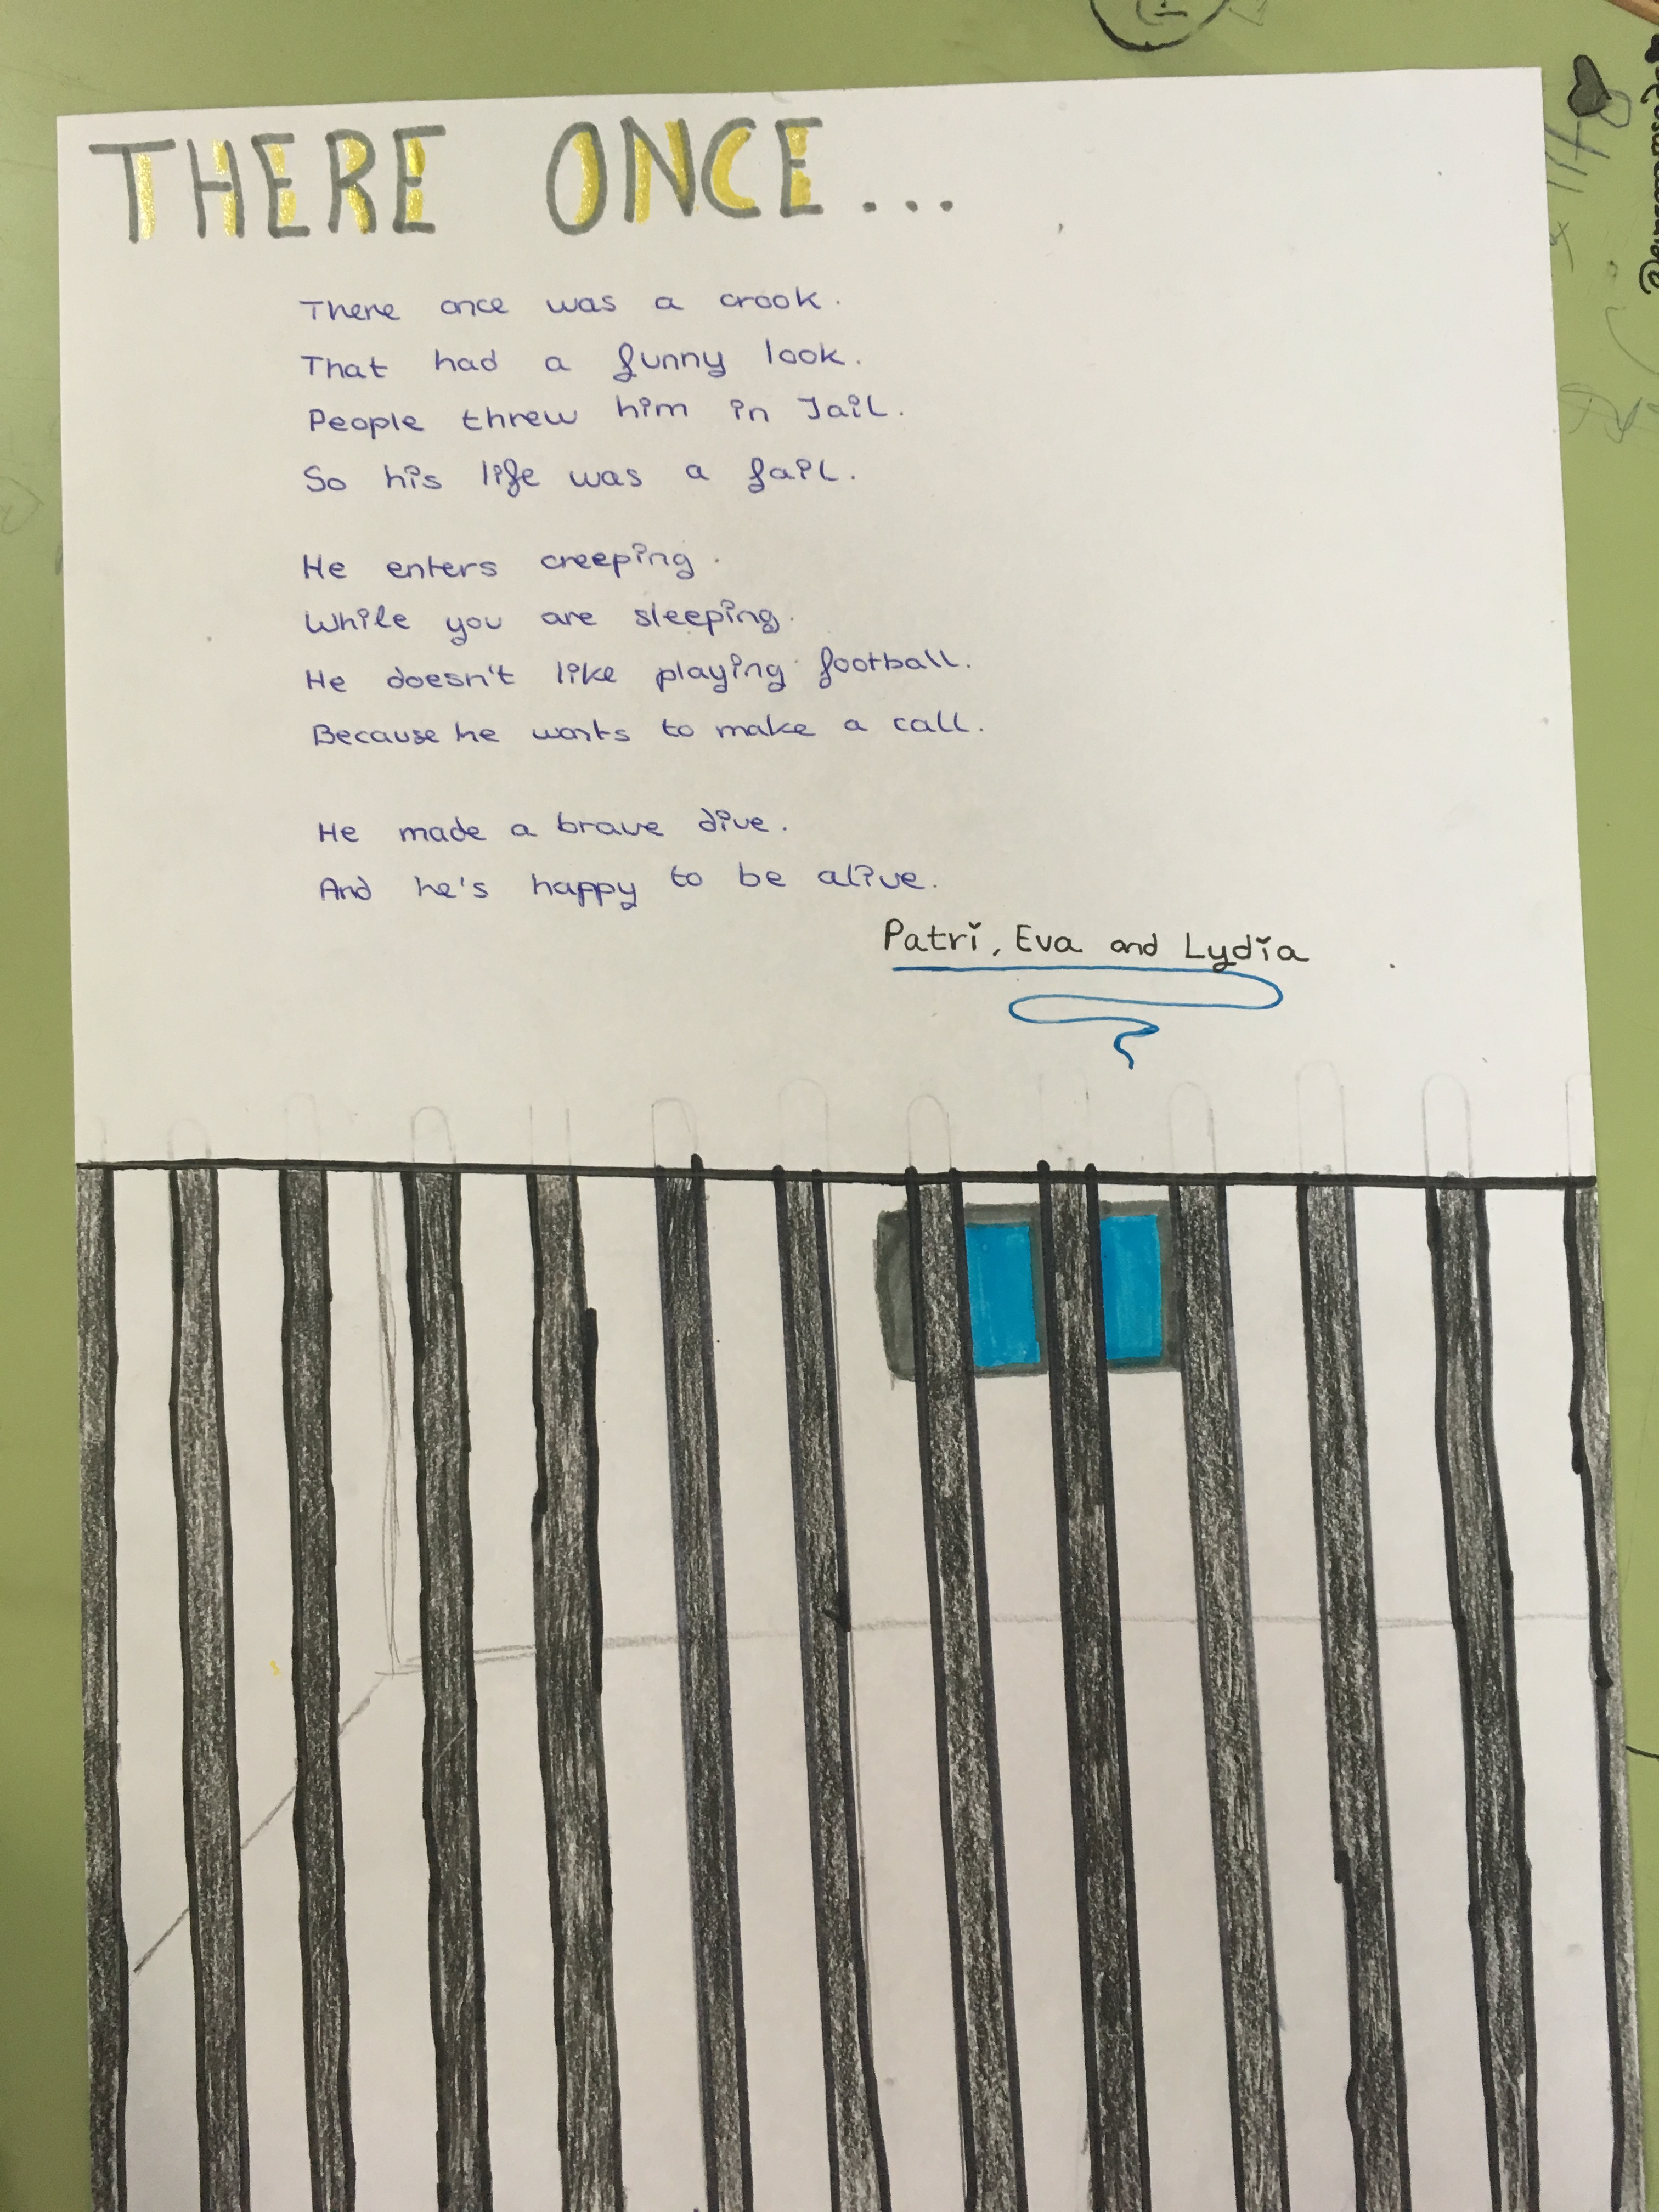 THERE ONCE...
There once was a crook.
That had a funny look.
People threw him in Jail.
So his life was a fail.
He enters creeping.
While you are sleeping.
He doesn't like playing football.
Because he wants to make a call.
He made a brave dive.
And he's happy to be alive.
Patri, Eva and Lydia